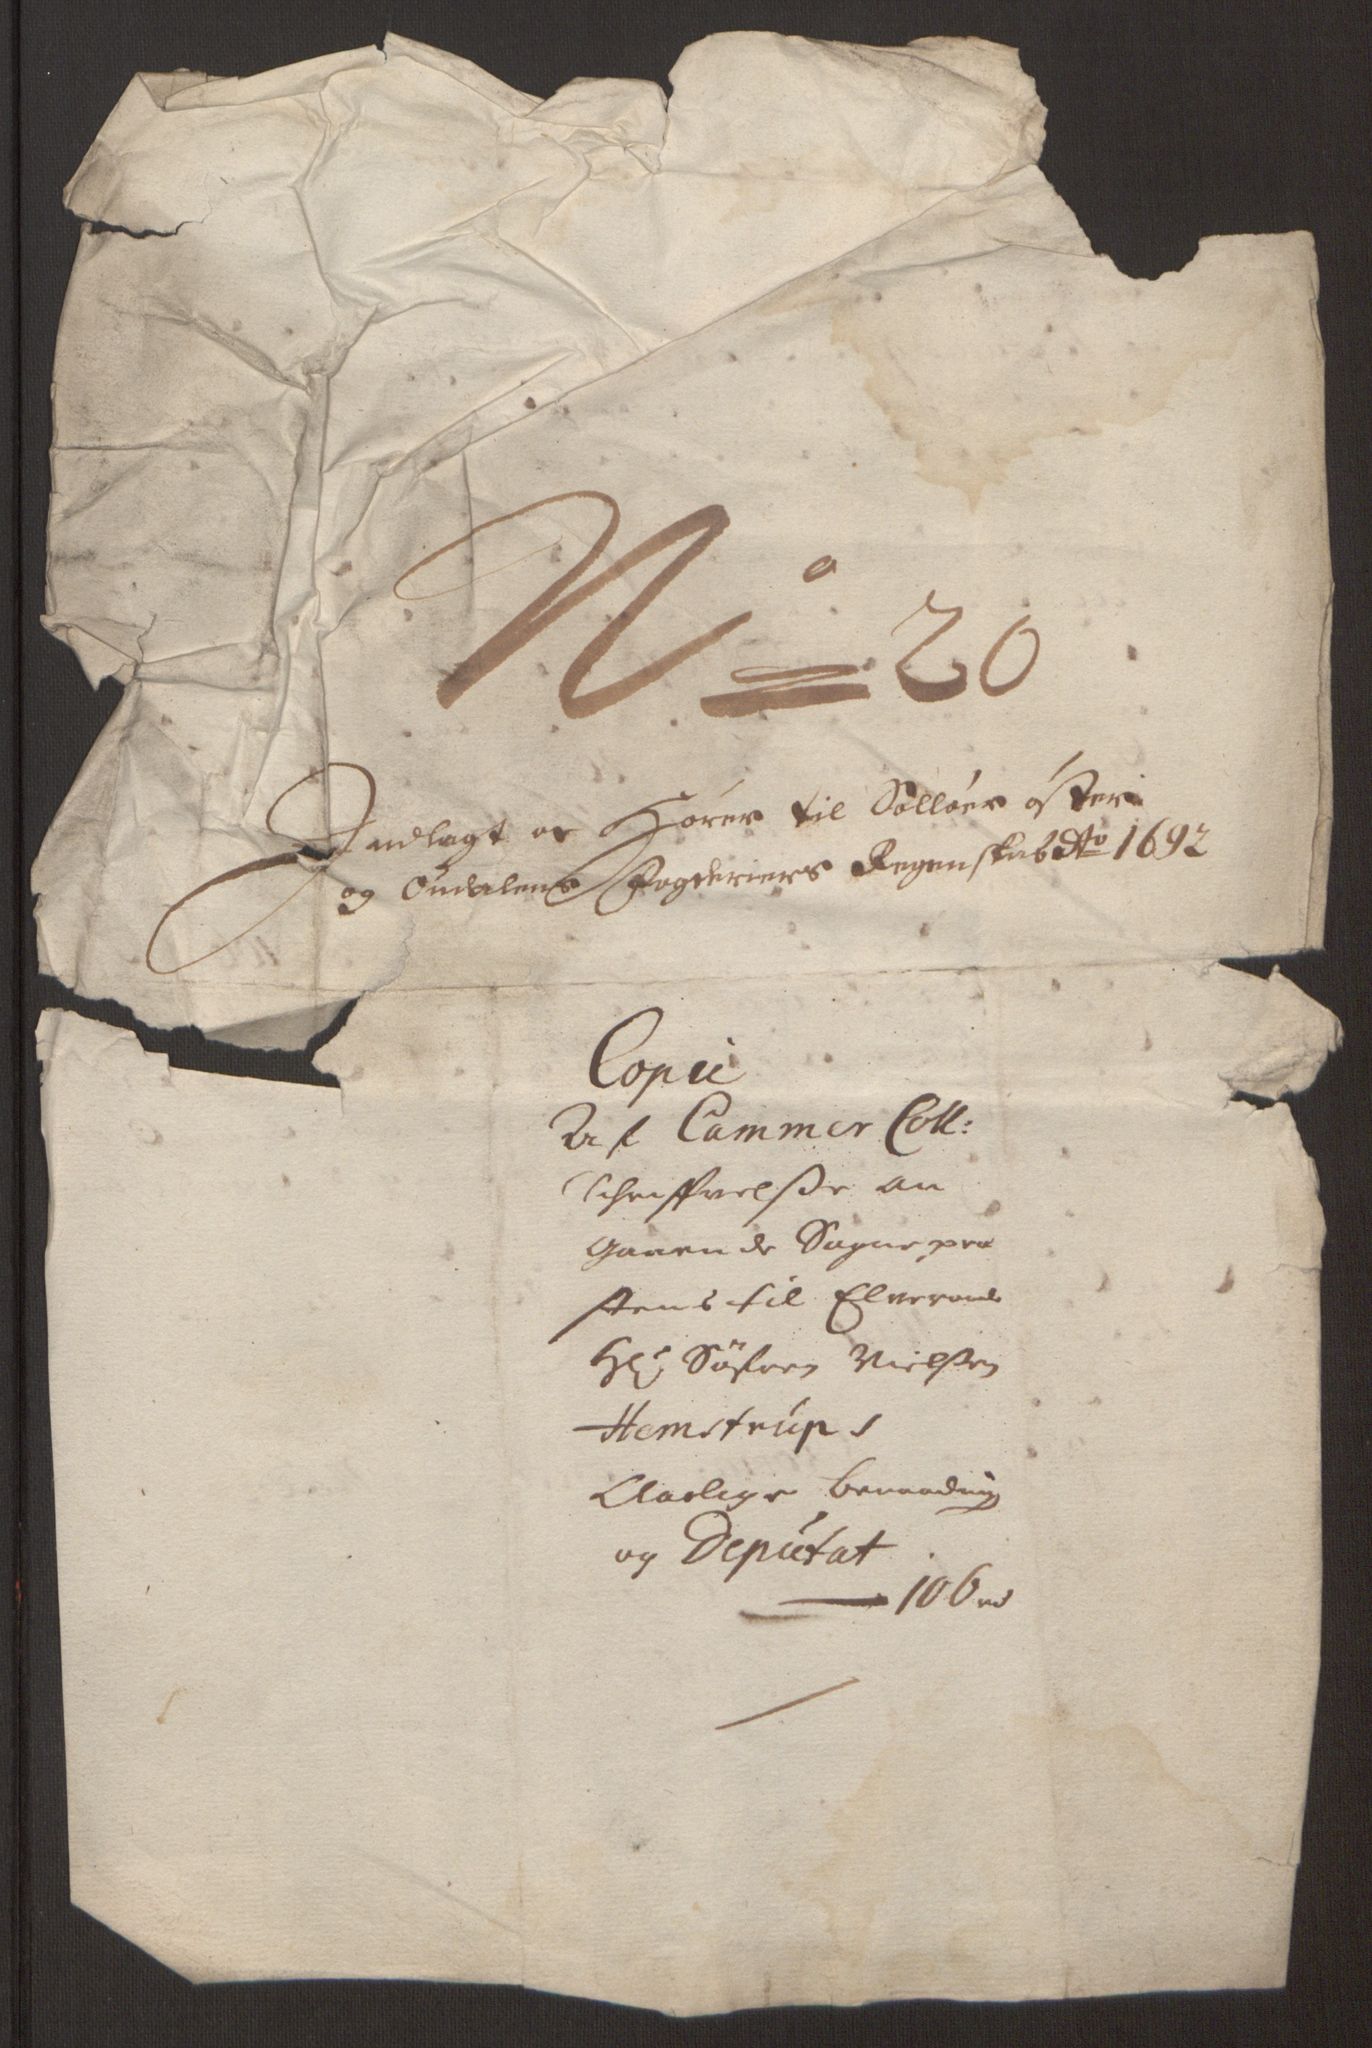 No 20
Indlagt og Hører til Solløer öster
og Oudalens Fogderiers Regenskab dto 1692
Copie
Af Cammer Coll:
Schrifvelsse an
Gaaende Sogne præ
stens til Elverom
Hr: Söfren Nielssen
Hemstrups
Aarlige benaading
og Deputat
106 rd